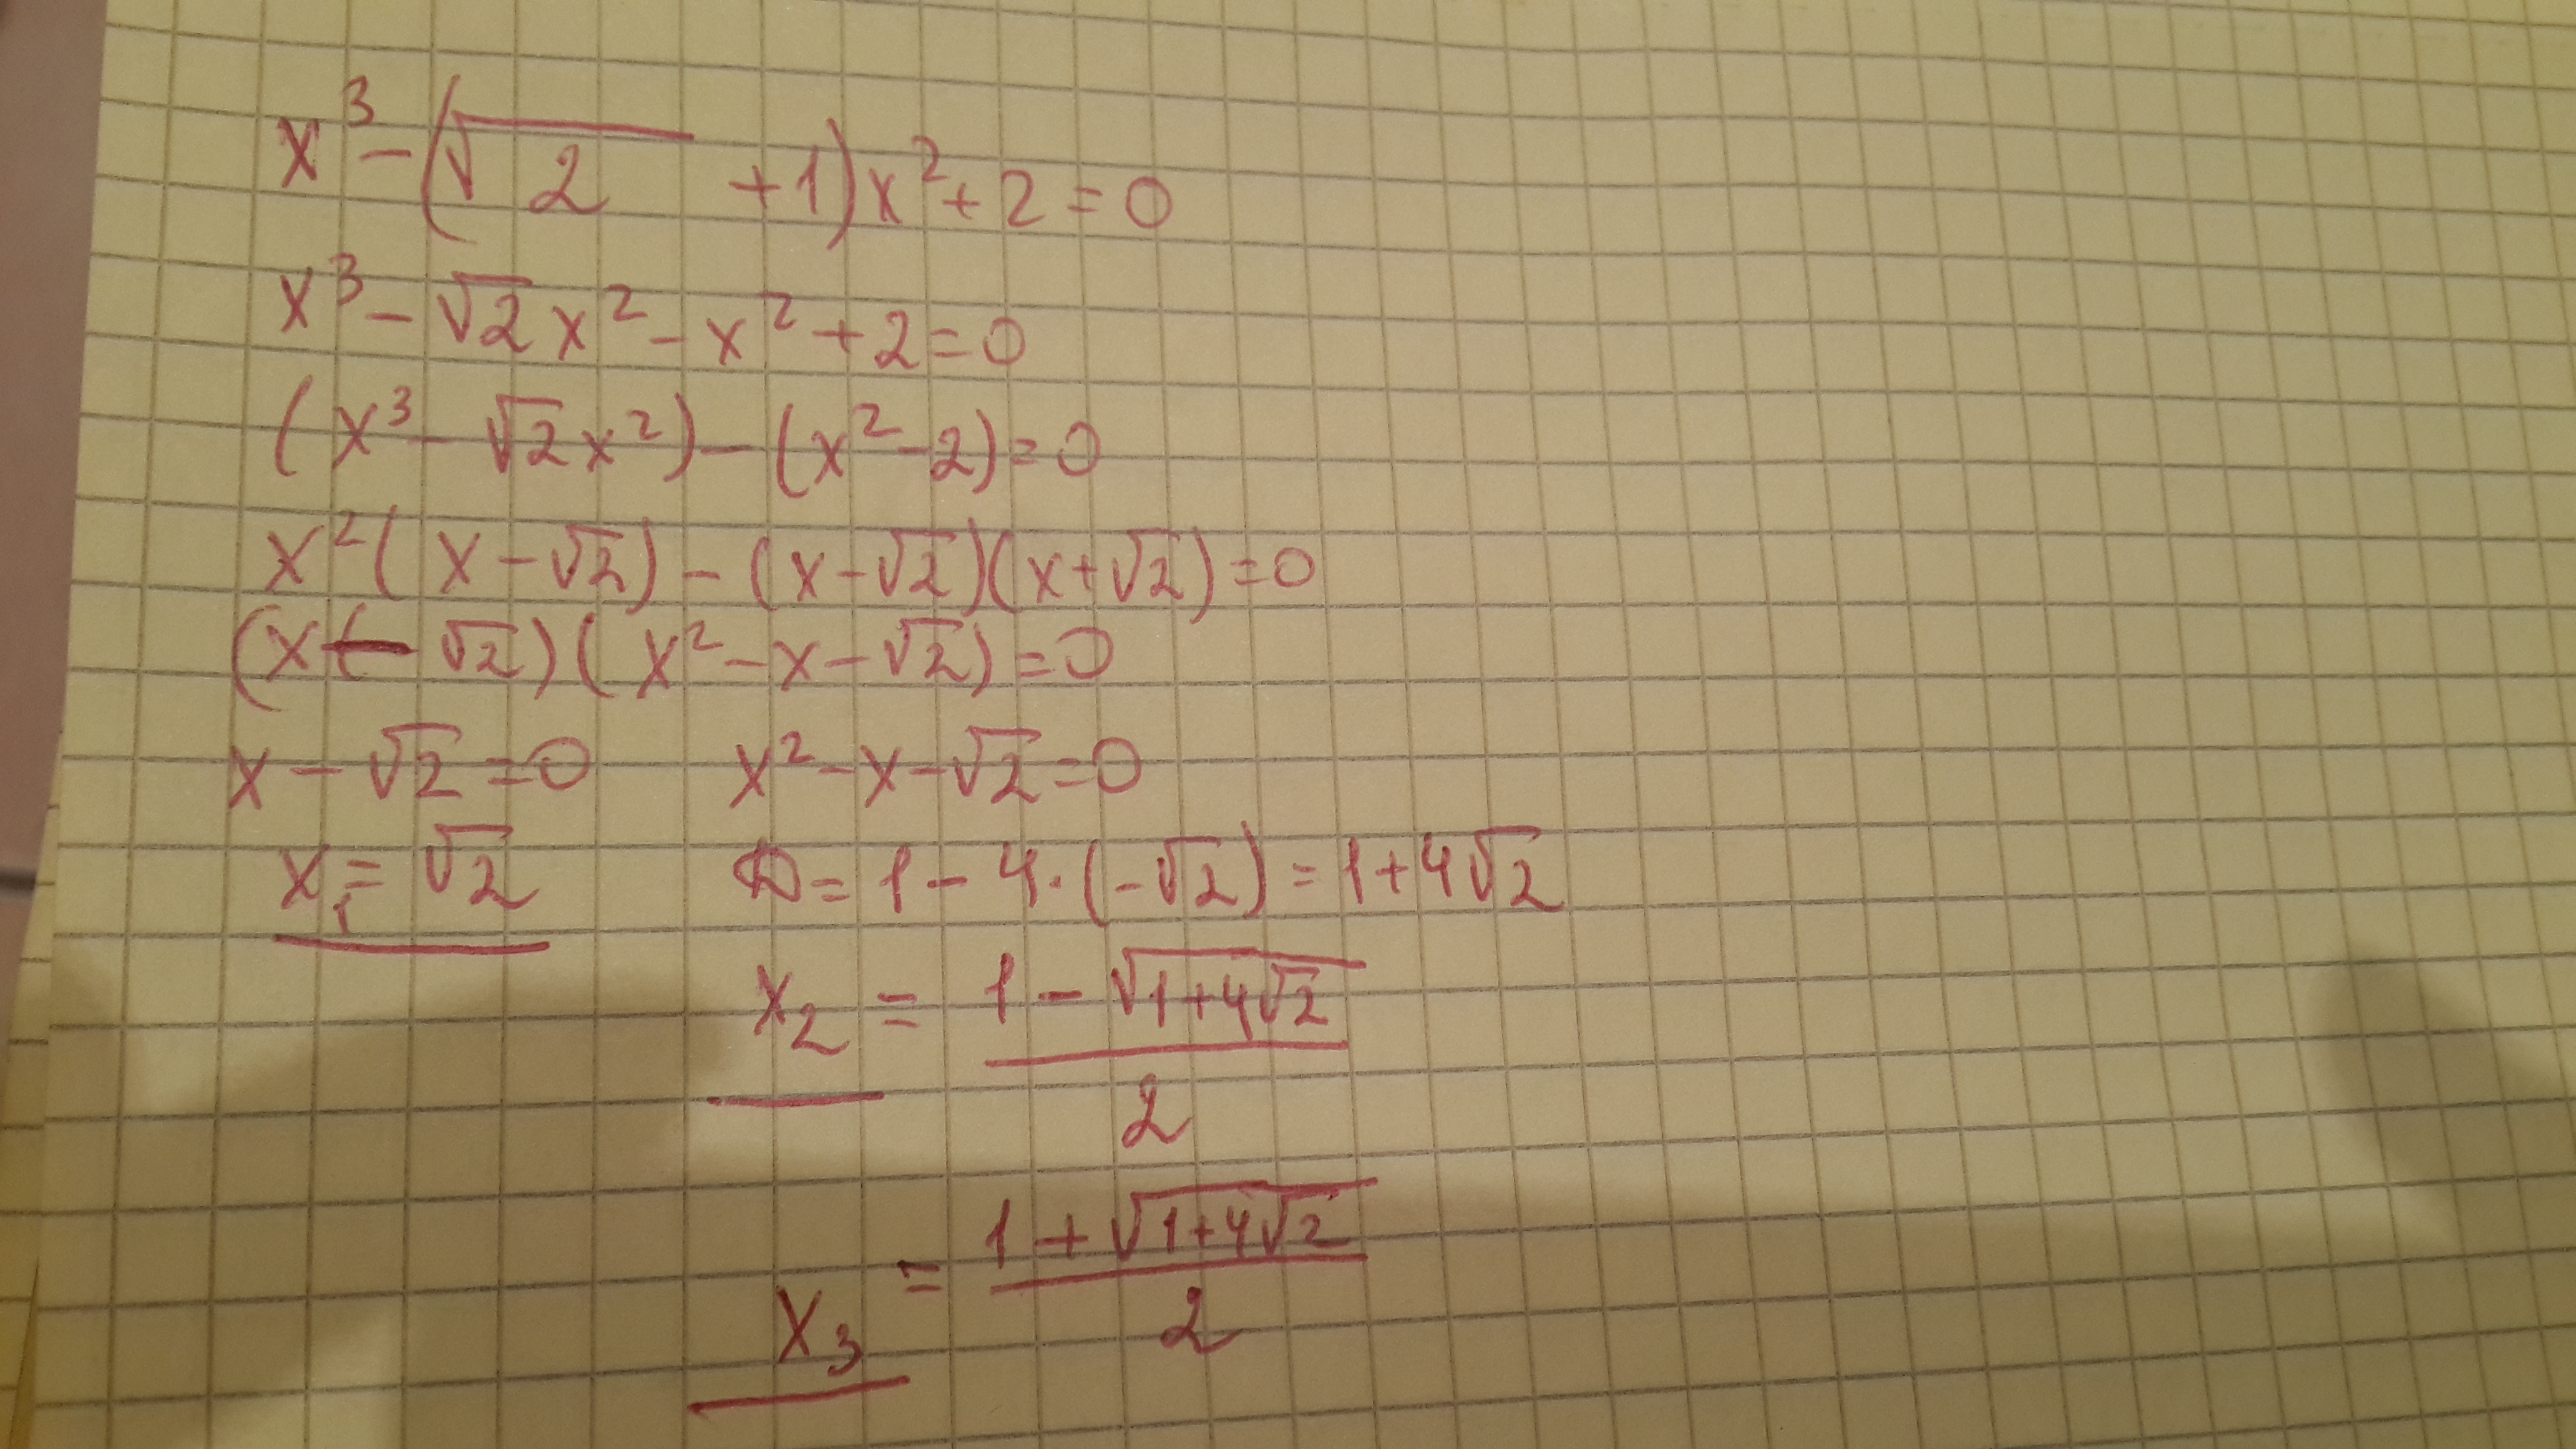 x³ - (√2 + 1)x² + 2 = 0
x³ - √2x² - x² + 2 = 0
(x³ - √2x²) - (x² - 2) = 0
x²(x - √2) - (x - √2)(x + √2) = 0
(x - √2)(x² - x - √2) = 0
x - √2 = 0 x² - x - √2 = 0
x₁ = √2 D = 1 - 4·(-√2) = 1 + 4√2
x₂ = (1 - √(1+4√2))/2
x₃ = (1 + √(1+4√2))/2